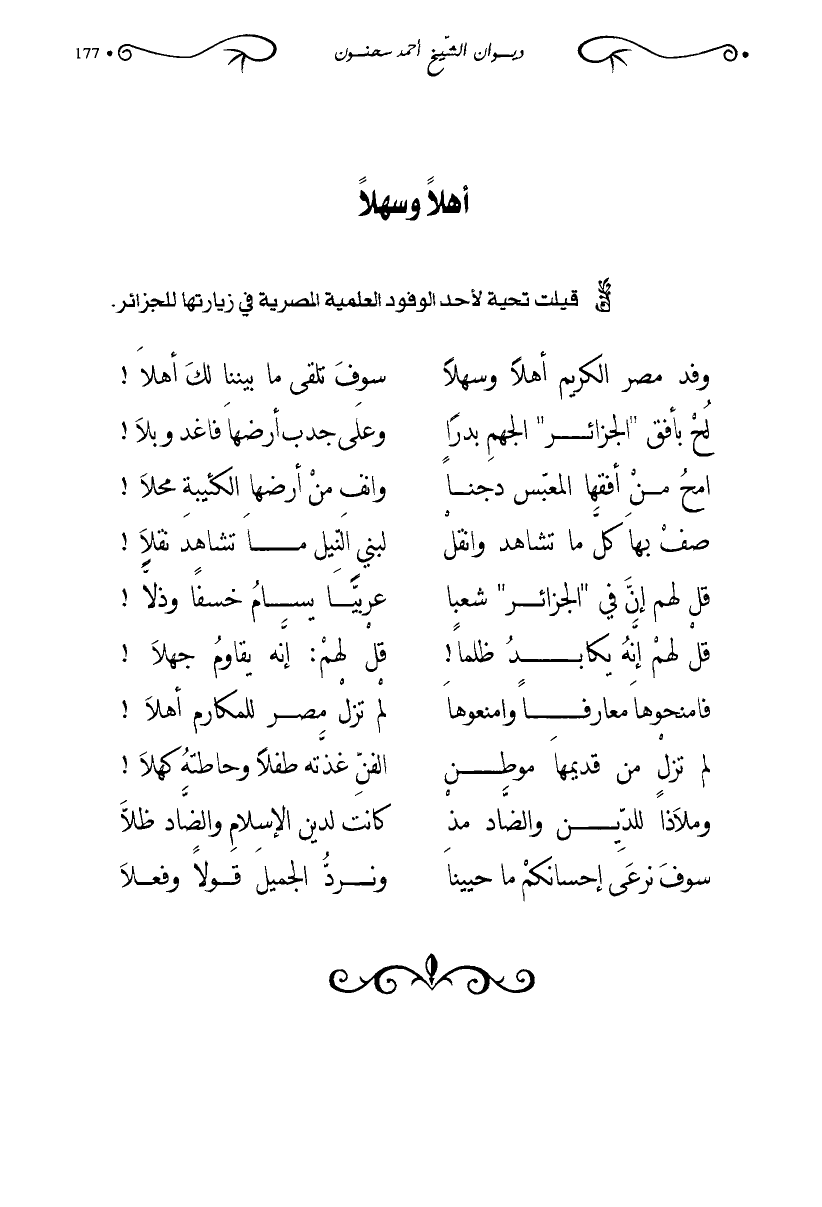 ديوان الشّيخ أحمد سحنون 177
أهلاً وسهلاً
قيلت تحية لأحد الوفود العلمية المصرية في زيارتها للجزائر.
وفد مصر الكريم أهلاً وسهلاً سوفَ تلقى ما بيننا لكَ أهلاَ !
لُحْ بأفق "الجزائر" الجهمِ بدرًا وعلَى جدب أرضها فاغد وبلاَ !
امحُ منْ أفقِها المعبّس دجنا وانفِ منْ أرضها الكئيبة محلاَ !
صفْ بها كلَّ ما تشاهد وانقلْ لبني النّيل ما تشاهد نقلاً !
قلْ لهم إنَّ في "الجزائر" شعبا عربيًّا يسامُ خسفًا وذلاًّ !
قلْ لهمْ إنَّهُ يكابدُ ظلما! قلْ لهمْ: إنه يقاومُ جهلاَ !
فامنحوها معارفاً وامنعوها لمْ تزلْ مصر للمكارمِ أهلاَ !
لم تزلْ من قديمها موطن الفنّ غذته طفلاً وحاطتهُ كهلاَ !
وملاَذاً للدّين والضاد مذْ كانت لدين الإسلامِ والضاد ظلاَّ
سوفَ نرعَى إحسانكمْ ما حيينا ونردُّ الجميلَ قولاً وفعلاَ